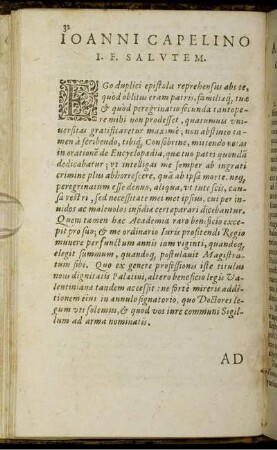 32
IOANNI CAPELINO
I. F. SALVTEM.
EGo duplici epistola reprehensus abs te,
quod oblitus eram patris, familiæq; tuæ
& quòd peregrinatio secunda tantope-
re mihi non prodesset, quatenus vni-
uersitas gratificaretur maximè; non abstineo ta-
men à scribendo, tibiq; Consobrine, mittendo notas
in orationē de Encyclopædia, quæ tuo patri quondā
dedicabatur; vt intelligat me semper ab ingrati
crimine plus abhorrescere, quà ab ipsa morte. neq;
peregrinatum esse denuo, aliqua, vt tute scis, cau-
sa vestri, sed necessitate mei met ipsius, cui per in-
uidos ac maleuolos insidiæ certæ parari dicebantur.
Quem tamen hæc Academia raro beneficio exce-
pit pro suo; & me ordinario Iuris profitendi Regio
munere perfunctum annis iam viginti, quandoq;
elegit summum, quandoq; postulauit Magistra-
tum sibi. Quo ex genere professionis iste titulus
noui dignitatis Palatini, altero beneficio legis Va-
lentinianæ tandem accessit: ne fortè mireris addi-
tionem eius in annulo signatorio, quo Doctores le-
gum vti solemus, & quod vos iure communi Sigil-
lum ad arma nominatis.
AD